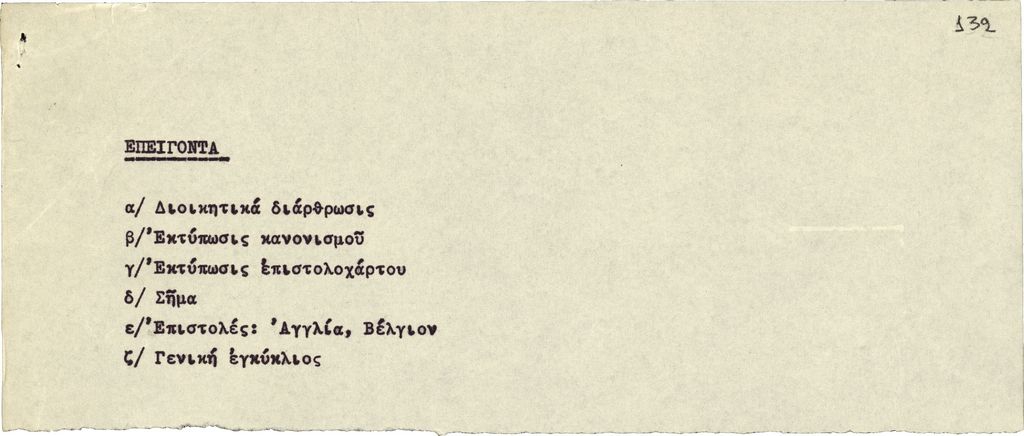 139
ΕΠΕΙΓΟΝΤΑ
α/ Διοικητικά διάρθρωσις
β/'Εκτύπωσις κανονισμοῦ
γ/'Εκτύπωσις ἐπιστολοχάρτου
δ/ Σῆμα
ε/'Επιστολές: 'Αγγλία, Βέλγιον
ζ/ Γενική ἐγκύκλιος